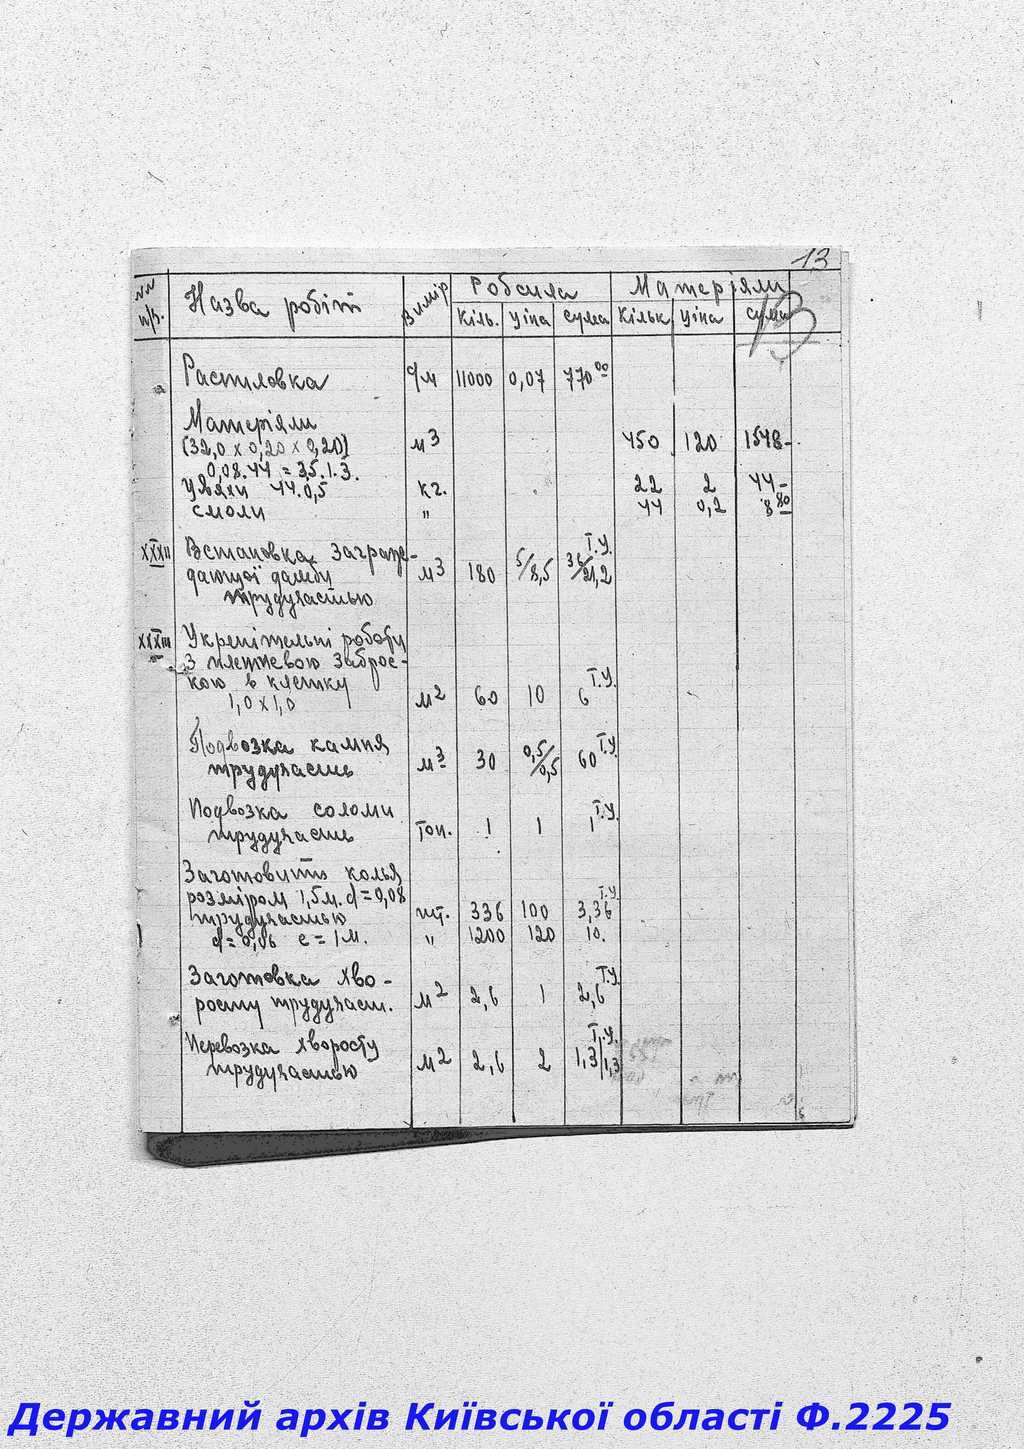 13
13
№№ п/п. Назва робіт Вимір Робсила Матеріяли
кіль. ціна сума кільк ціна сума
Распиловка п/м 11000 0,07 770⁰⁰
Матеріяли
(32,0 x 0,20 x 0,20) м3 450 120 1548-
0,08.44 = 35.1.3.
44.0,5 кг. 22 2 44-
смоли " 44 0,2 8 80
XXXII Встановка заграж-
дающої дамби м3 180 5/8,5 36/21,2 Т.У.
трудучастью
XXXIII Укрепітельні роботи
з плетневою заброс-
кою в клетку
1,0 x 1,0 м2 60 10 6 Т.У.
Подвозка камня
трудучасть м3 30 0,5/0,5 60 Т.У.
Подвозка соломи
трудучасть тон. 1 1 1 Т.У.
Заготовить колья
розміром 1,5м. d=0,08
трудучастью шт. 336 100 3,36 Т.У.
d=0,06 e=1м. " 1200 120 10.
Заготовка хво-
росту трудучаст. м2 2,6 1 2,6 Т.У.
Перевозка хворосту
трудучастью м2 2,6 2 1,3/1,3 Т.У.
Державний архів Київської області Ф.2225